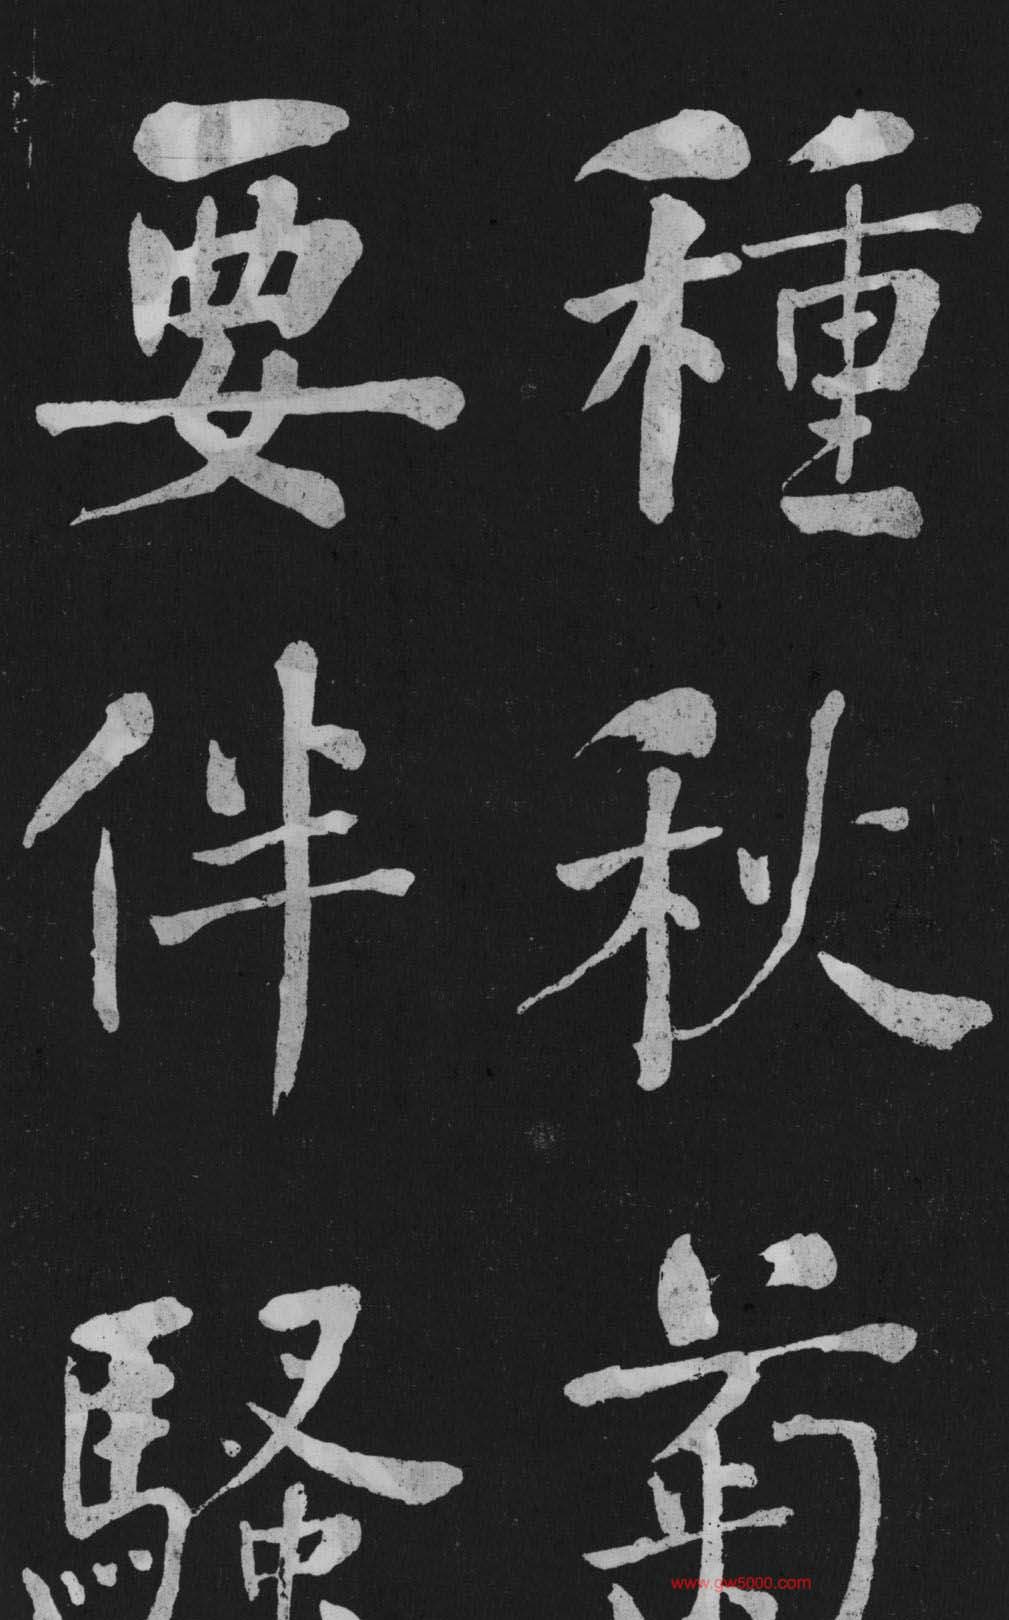 種秋菊
要伴騷
www.gw5000.com